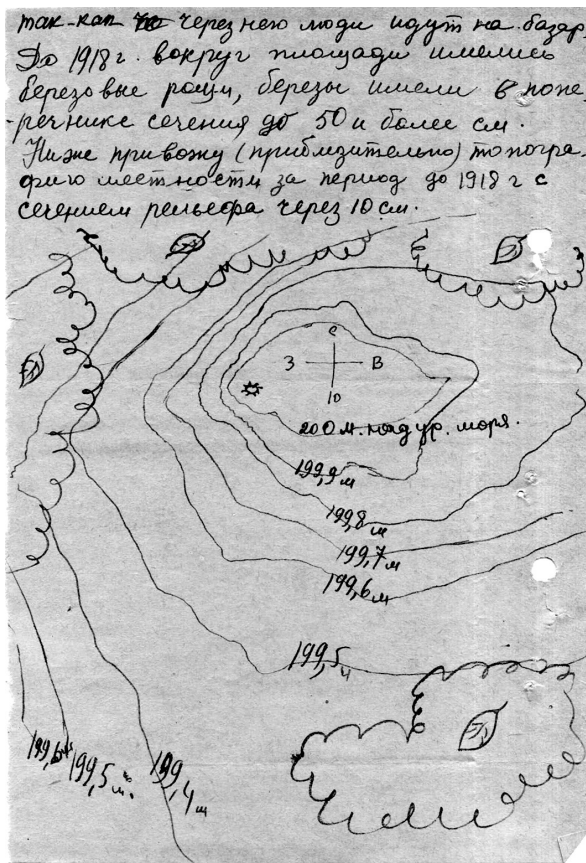 так-как че через нею люди идут на базар.
До 1918 г. вокруг площади имелись
березовые рощи, березы имели в попе
-речнике сечения до 50 и более см.
Ниже привожу (приблизительно) топогра-
фию местности за период до 1918 г с
сечением рельефа через 10 см.
С
З В
Ю
200 м. над ур. моря.
199,9 м
199,8 м
199,7 м
199,6 м
199,5 м
199,6 м
199,5 м.
199,4 м